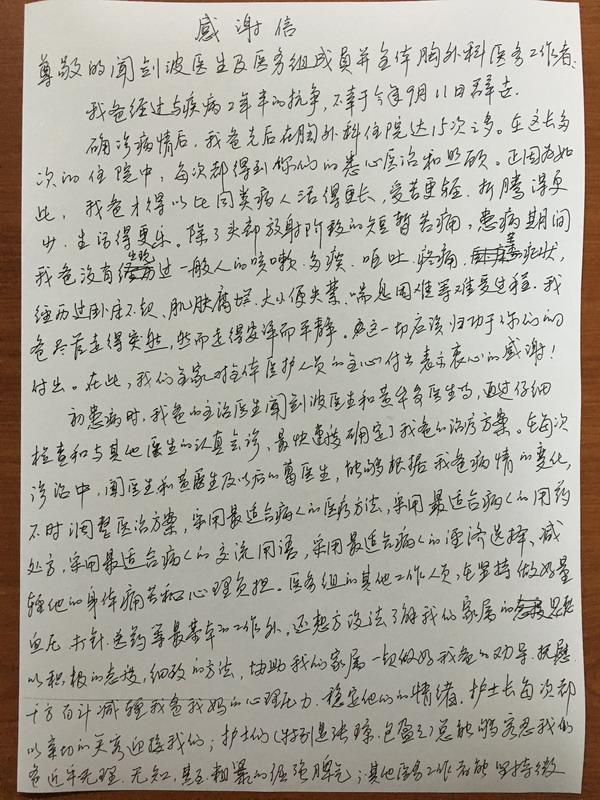 感谢信
尊敬的闻剑波医生及医务组成员并全体胸外科医务工作者:
我爸经过与疾病2年半的抗争,不幸于今年9月11日辞去.
确诊病情后,我爸先后在胸外科住院达15次之多。在这长多
次的住院中,每次都得到你们的悉心医治和照顾。正因为如
此,我爸才得以比同类病人活得更长,受苦更轻.折腾得更
少.生活得更乐。除了头部放射阶段的短暂苦痛,患病期间
我爸没有经历过一般人的咳嗽.多痰、呕吐.疼痛.等症状,
经历过卧床不起、肌肤腐烂、大小便失禁、喘息困难等难受过程.我
爸尽管走得突然,然而走得安详而平静。这一切应该归功于你们的
付出。在此,我们全家对全体医护人员的全心付出表示衷心的感谢!
初患病时,我爸的主治医生闻剑波医生和黄华医生等,通过仔细
检查和与其他医生的认真会诊,最快速确定了我爸的治疗方案。在每次
诊治中,闻医生和黄医生及以后的葛医生,能够根据我爸病情的变化,
不时调整医治方案,采用最适合病人的医疗方法,采用最适合病人的用药
处方,采用最适合病人的交流用语,采用最适合病人的经济选择、减
轻他的身体痛苦和心理负担。医务组的其他工作人员,在坚持做好量
血压.打针.送药等最基本的工作外,还想方设法了解我们家属的思想
以积极的态度,细致的方法,协助我们家属一切做好我爸的劝导.抚慰.
千方百计减轻我爸我妈的心理压力.稳定他们的情绪.护士长每次都
以亲切的笑容迎接我们;护士们(特别是张琼.包盈)总能够容忍我们
爸近乎无理.无知.甚至粗暴的倔强脾气;其他医务工作者能坚持微